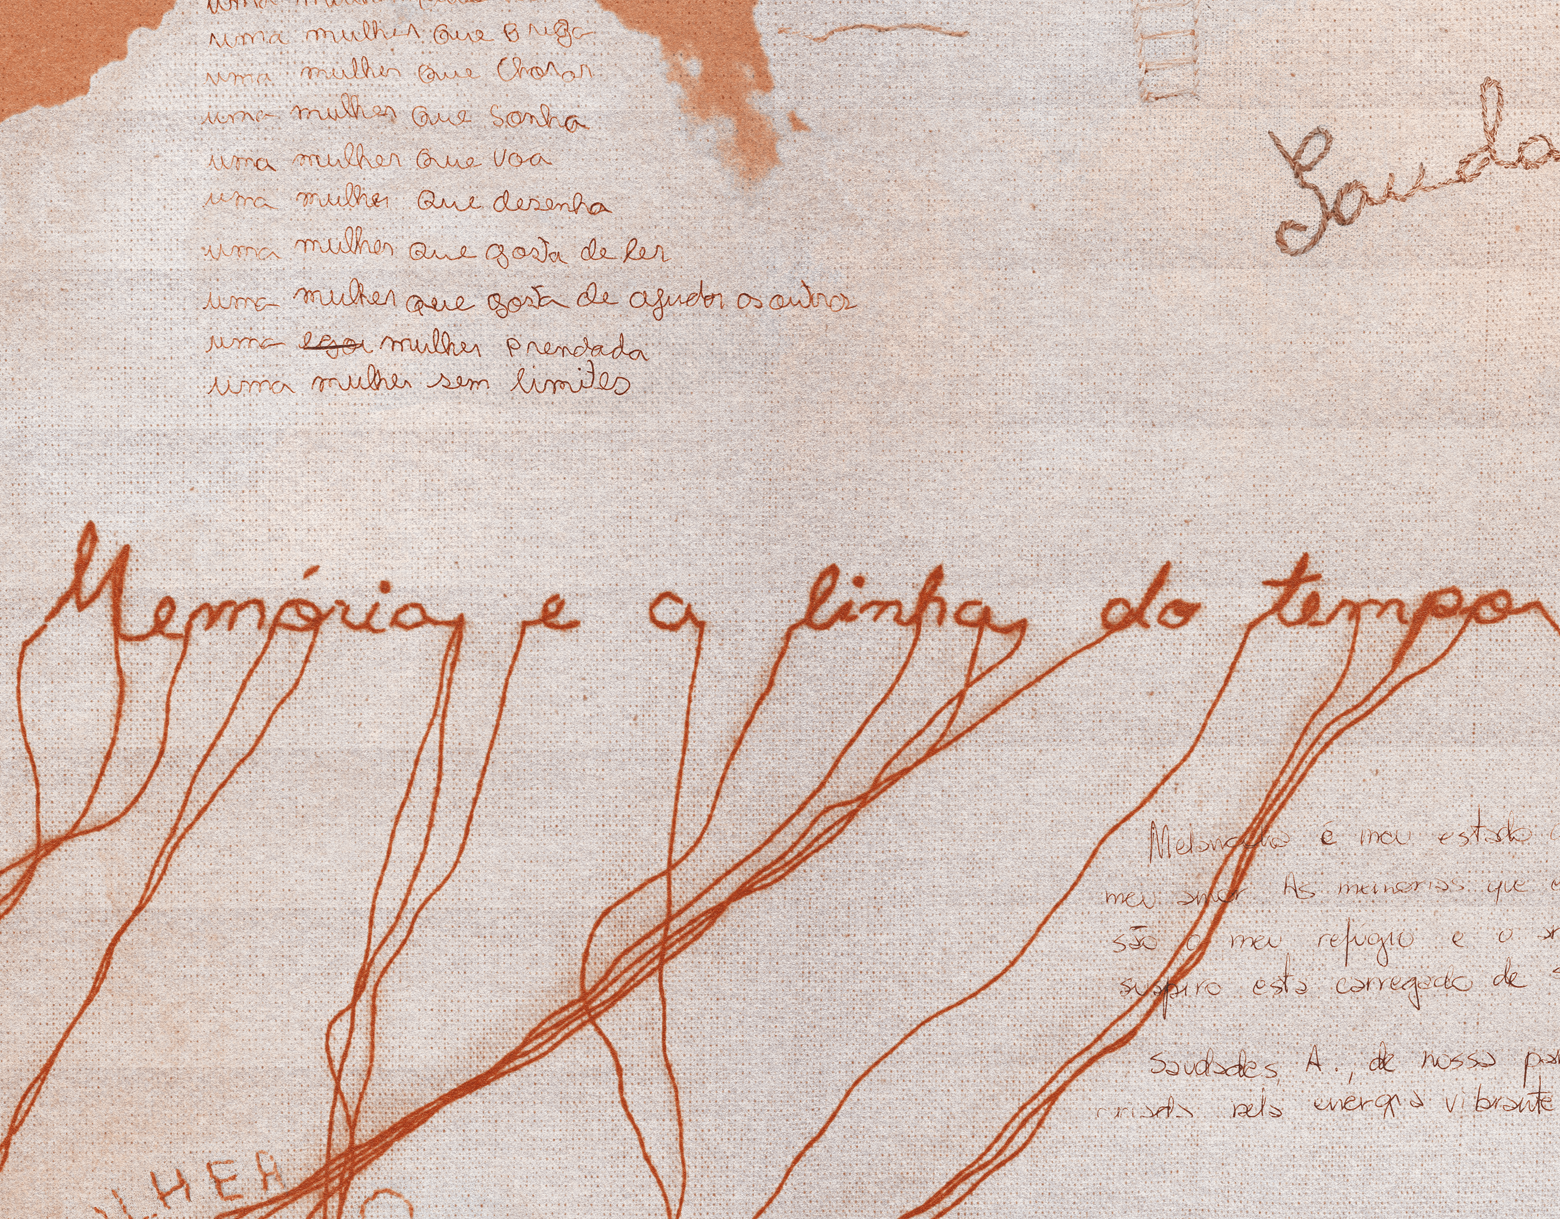 uma mulher que briga
uma mulher que chorar
uma mulher que sonha
uma mulher que voa
uma mulher que desenha
uma mulher que gosta de ler
uma mulher que gosta de ajudar os outros
uma mulher prendada
uma mulher sem limites
Sauda
Memória e a linha do tempo
Melancolia é meu estado
meu amor. As memórias que
são o meu refugio e o
suspiro esta carregado de
Saudades, A., de nossa
pela energia vibrante
LHER